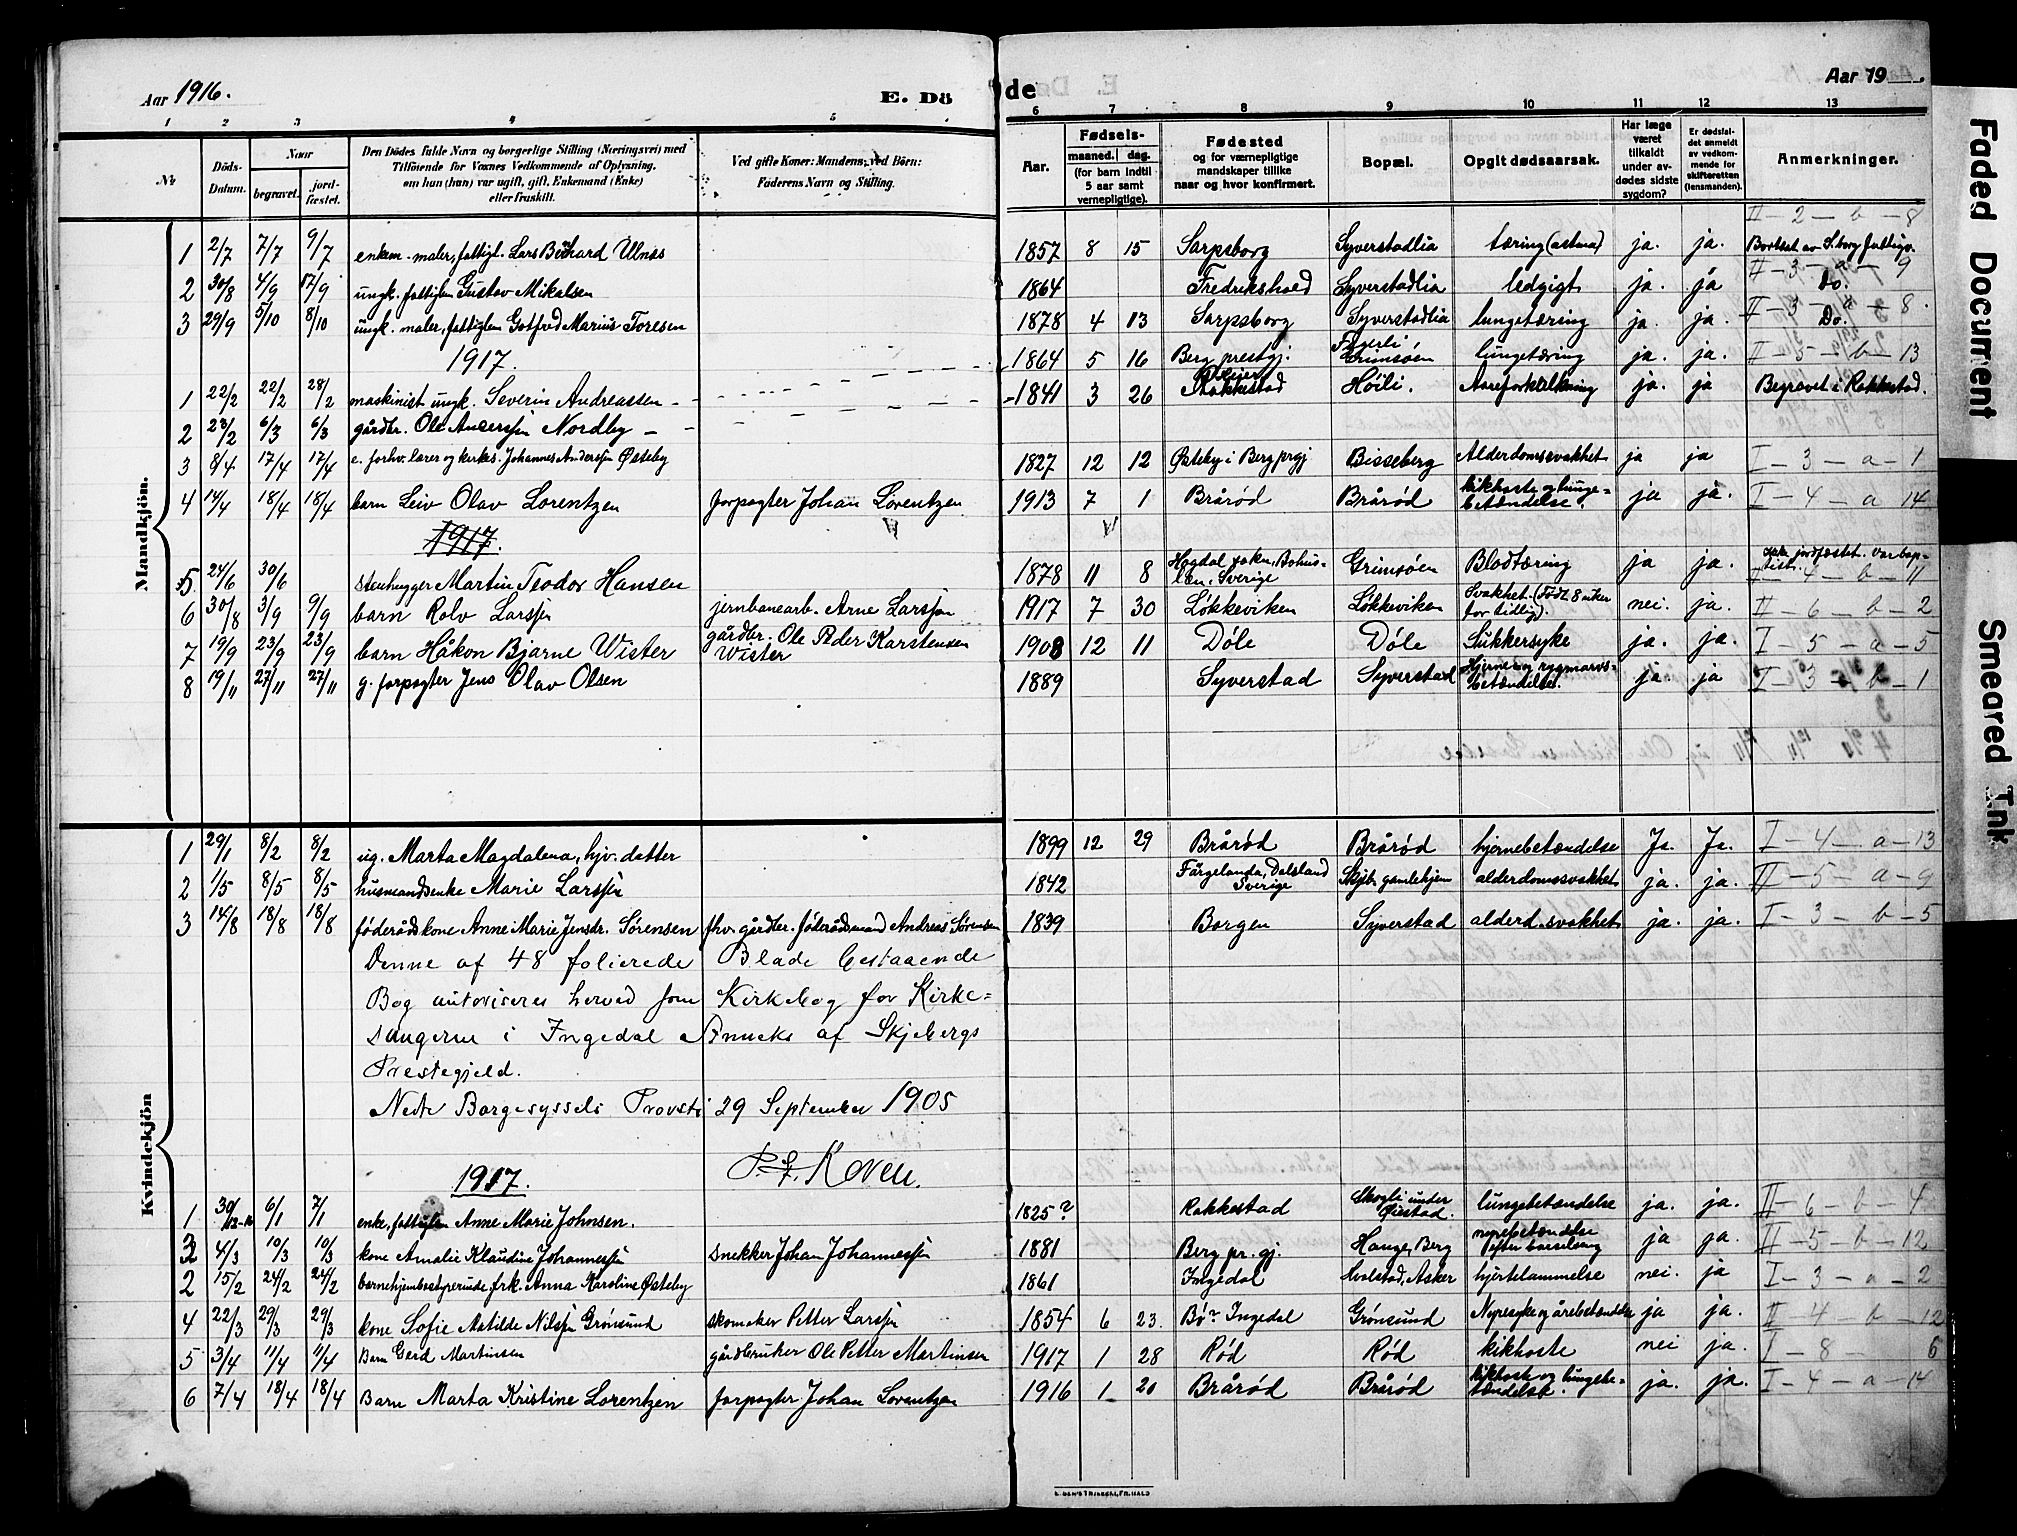 Aar 1916.
E. Dö
de
Aar 19
1 2 3 4 5
6 7 8 9 10 11 12 13
Nr
Döds-Datum.
Naar
begravet.
jord-fæstet.
Den Dödes fulde Navn og borgerlige Stilling (Næringsvei) med
Tilföiende for Voxnes Vedkommende af Oplysning.
om hun (han) var ugift, gift, Enkemand (Enke)
eller fraskilt.
Ved gifte Koner: Mandens, ved Börn:
Faderens Navn og Stilling.
Aar.
Fødsels-
maaned. dag.
(for barn indtil
5 aar samt
vernepligtige).
Fødested
og for værnepligtige
mandskaper tillike
naar og hvor konfirmert.
Bopæl.
Opgit dødsaarsak.
Har læge
været
tilkaldt
under av-
dødes sidste
sygdom?
Er dødsfal-
det anmeldt
av vedkom-
mende for
skifteretten
(lensmanden).
Anmerkninger.
Mandkjön.
II-2-b-8
1 2/7 7/7 9/7 enkem. maler, fattigl. Lars Bernhard Ulnæs 1857 8 15 Sarpsborg Syverstadlia tæring (astma) ja. ja. Bortsat av S.borg fattigv.
II-3-a-9
2 30/8 4/9 17/9 ungk. fattiglem Gustav Mikalsen 1864 Fredrikshald Syverstadlia Ledgigt ja. ja Do.
3 29/9 5/10 8/10 ungk. maler, fattiglem Gotfred Marius Toresen 1878 4 13 Sarpsborg Syverstadlia lungetæring ja. ja. II-3-a-8. Do.
1917.
1864 5 16 Berg prestgj. Fagerli Grimsøen lungetæring ja. ja. II-5-b-13
1 22/2 22/2 28/2 maskinist ungk. Severin Andreassen
1841 3 26 Rakkestad Høili. Aareforkalkning ja. ja Begravet i Rakkestad.
2 23/2 6/3 6/3 gårdbr. Ole Anderssen Nordby
3 8/4 17/4 17/4 e. forhv. lærer og kirkes. Johannes Anderssen Østeby 1827 12 12 Østeby i Berg prgj Bisseberg Alderdomssvakhet ja ja I-3-a-1
4 14/4 18/4 18/4 barn Leiv Olav Lorentzen forpagter Johan Lorentzen 1913 7 1 Brårød Brårød kikhoste og lunge-betændelse. ja ja. I-4-a 14
1917.
5 24/6 30/6 stenhugger Martin Teodor Hansen 1878 11 8 Hogdal sokn, Bohus-len, Sverige Grimsøen Blodtæring ja ja. Ikke jordfæstet. Var bap-tist. I-4-b-11
6 30/8 3/9 9/9 barn Rolv Larssen jernbanearb. Arne Larssen 1917 7 30 Løkkeviken Løkkeviken Svakhet. (Født 8 uker for tidlig). nei. ja. II-6-b-2
7 19/9 23/9 23/9 barn Håkon Bjarne Wister gårdbr. Ole Peder Karstensen Wister 1908 12 11 Døle Døle Sukkersyke ja. ja. I-5-a-5
8 19/11 27/11 27/11 g. forpagter Jens Olav Olsen 1889 Syverstad Syverstad Hjerne og rygmarvs-betændelse. ja ja I-3-b-1
Kvindekjön
1 29/1 8/2 8/2 ug. Marta Magdalena, hjv. datter 1899 12 29 Brårød Brårød hjernebetændelse Ja. Ja. I-4-a-13
2 1/5 8/5 8/5 husmandsenke Marie Larssen 1842 Färgelanda, Dalsland Sverige Skjeb. gamlehjem alderdomssvakhet ja. ja. II-5-a-9
3 14/8 18/8 18/8 føderådskone Anne Marie Jensdr. Sørensen fhv. gårdbr. føderådsmand Andreas Sørensen 1839 Borgen Syverstad alderd.svakhet ja. ja. I-3-b-5
Denne af 48 folierede Blade bestaaende
Bog autoriseres herved som Kirkebog for Kirke-
sangeren i Ingedal Anneks af Skjebergs
Prestegjeld.
Nedre Borgesyssels Provsti 29 September 1905
Koren.
1917.
1 30/12-16 6/1 7/1 enke, fattiglem Anne Marie Johnsen. 1825? Rakkestad Skogli under Øiestad. lungebetændelse ja. ja. II-6-b-4
3 4/3 10/3 10/3 kone Amalie Klaudine Johannessen snekker Johan Johannessen 1881 Berg pr.gj. Hauge, Berg nyrebetændelse efter barselseng ja ja. II-5-b-12
2 15/2 24/2 24/2 barnehjembestyrerinde, frk. Anna Karoline Østeby 1861 Ingedal Hvalstad, Asker hjertelammelse nei. ja I-3-a-2
4 22/3 29/3 29/3 kone Sofie Matilde Nilssen Grønsund skomaker Petter Larssen 1854 6 23. Bø? Ingedal Grønsund Nyresyke og årebetændelse ja ja. II-4 b-12
5 3/4 11/4 11/4 Barn Gerd Martinsen gårdbruker Ole Petter Martinsen 1917 1 28 Rød Rød kikhoste nei ja. I-8- 6
6 7/4 18/4 18/4 Barn Marta Kristine Lorentzen forpagter Johan Lorentzen 1916 1 20 Brårød Brårød kikhoste og lungebe-tændelse. ja. ja. I-4-a-14
Faded Document
Smeared Ink